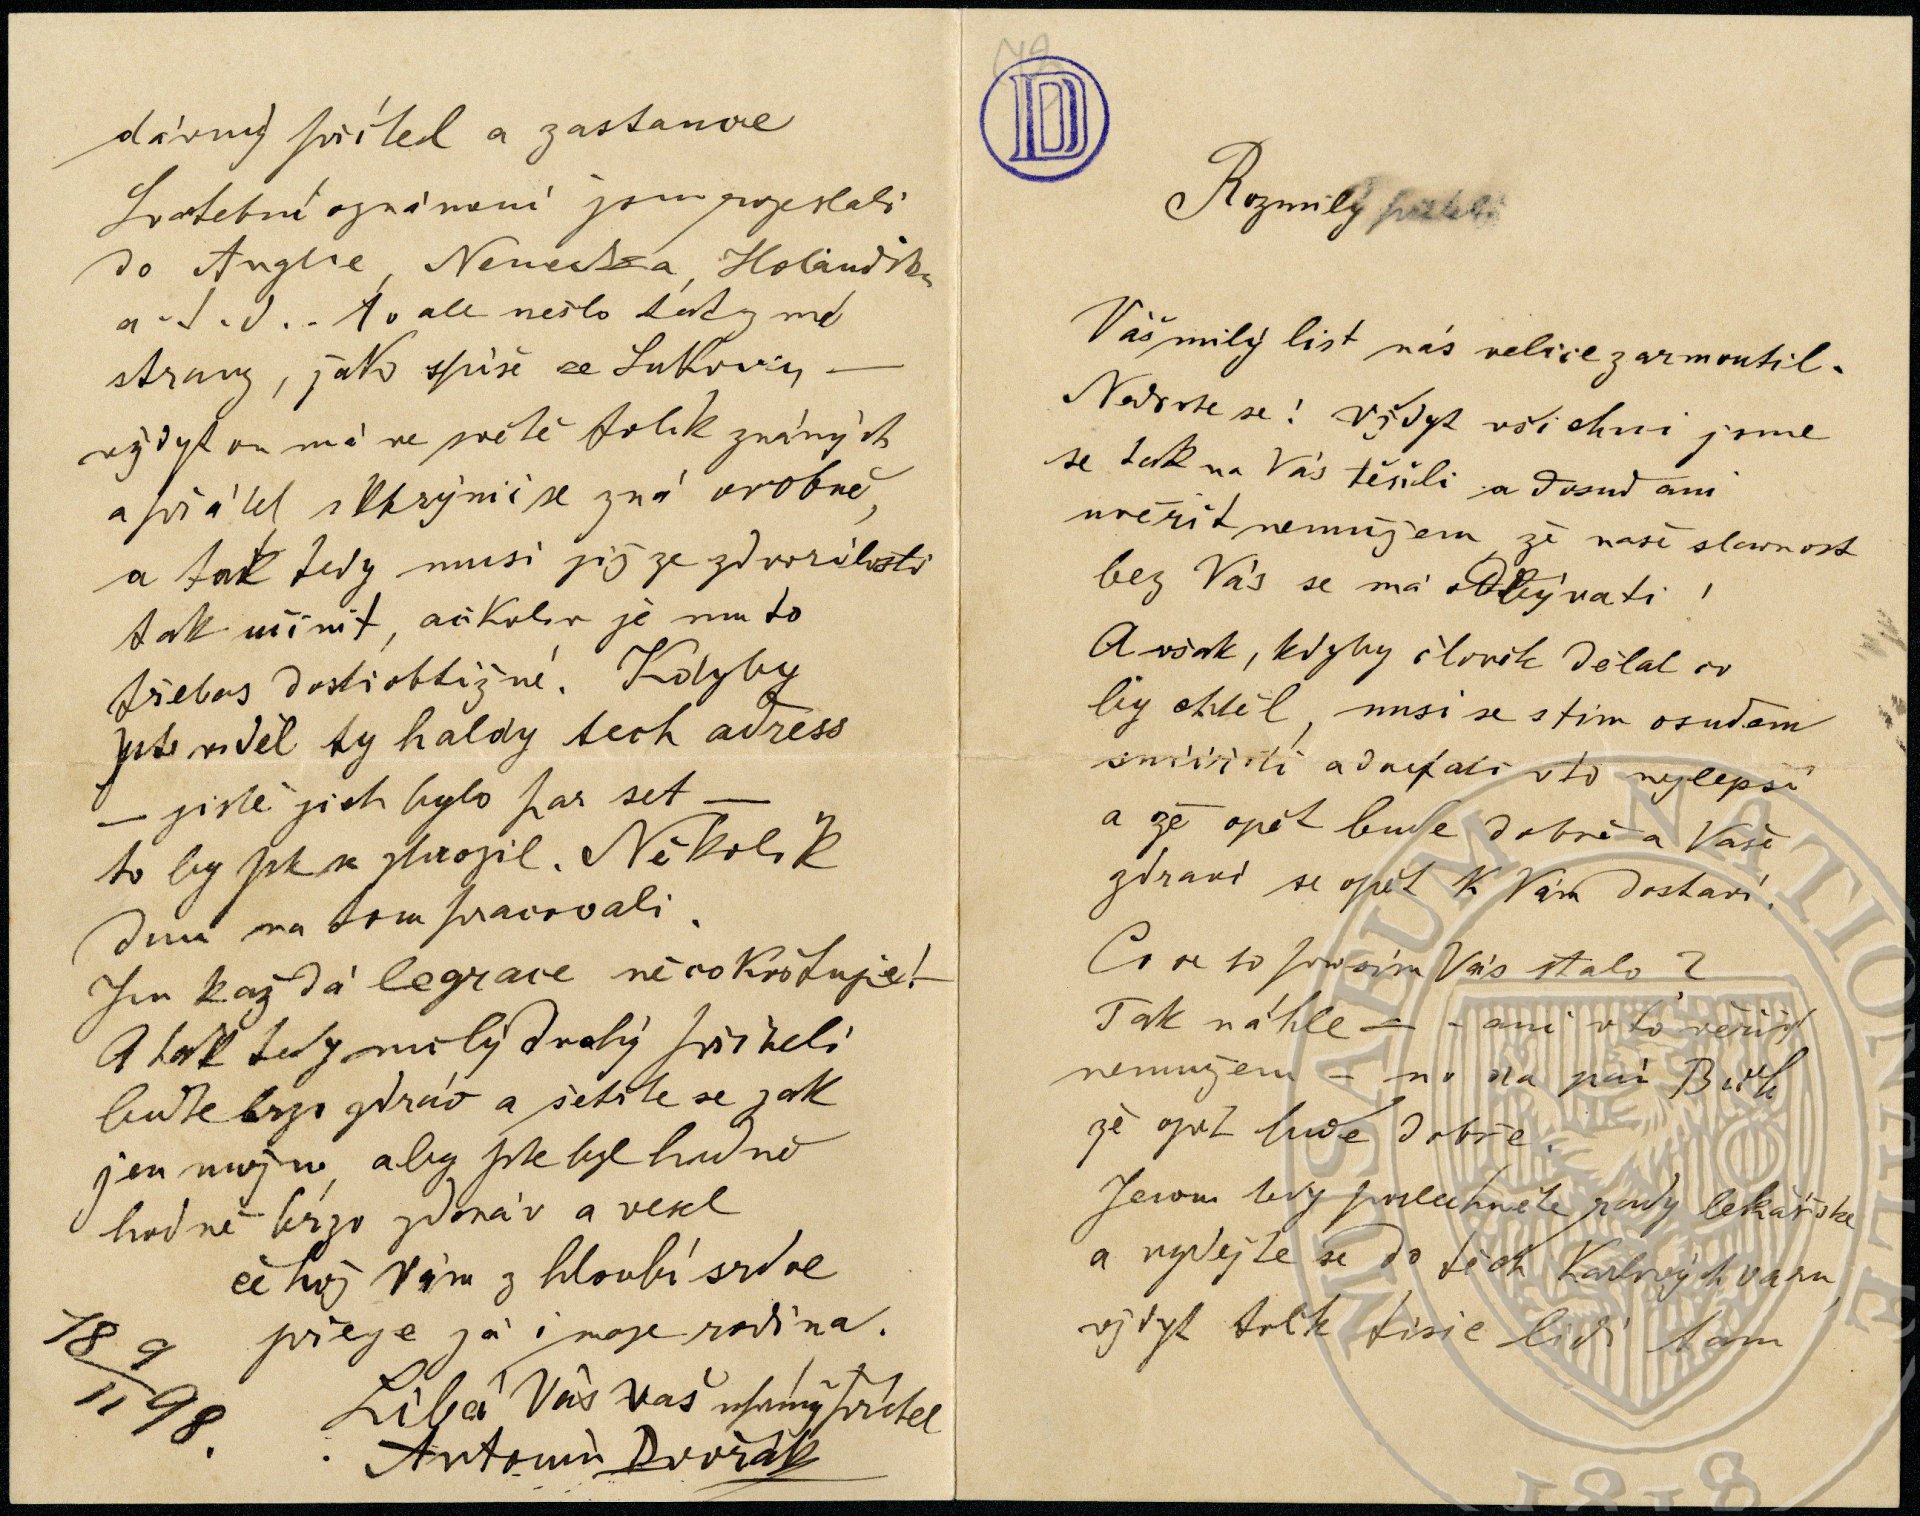 Rozmilý příteli
Váš milý list nás velice zarmoutil.
Nedivte se! Vždyt všichni jsme
se tak na Vás těšili a dosud ani
uvěřit nemůžem, že naše slavnost
bez Vás se má odbývati!
Avšak, kdyby člověk dělal co
by chtěl, musí se s tím osudem
smířiti a doufati v to nejlepší
a že opět bude dobře a Vaše
zdraví se opět k Vám dostaví!
Co se to prosím Vás stalo?
Tak náhle — - ani v to věřit
nemůžem — no dá pán Bůh
že opět bude dobře.
Jenom tedy poslechněte rady lékařské
a vydejte se do těch Karlových varu,
vždyt tolik tisíc lidí tam
dávný přítel a zastance
Svatební oznámení jsme rozeslali
do Anglie, Německa, Holandska
a.t.d... to ale nešlo tak z mé
strany, jako spíše ze Sukovy, —
vždyt on má ve světě tolik známých
a přátel s kterými se zná osobně,
a tak tedy musí již ze zdvořilosti
tak učinit, ačkoliv je mu to
třebas dosti obtížné. Kdyby
jste viděl ty haldy tech adress
— jistě jich bylo par set —
to by jste se zhrozil. Několik
dnu na tom pracovali.
Jen každá legrace něco koštuje! —
A tak tedy milý drahý příteli
buďte brzo zdráv a šetřte se jak
jen možno, aby jste byl hodně
hodně brzo zdráv a vesel
čehož Vám z hloubi srdce
přeje já i moje rodina.
Líbá Vás vaš upřímný přítel
Antonín Dvořák
18 9
11 98.
D
MUSAEUM NATIONALE
1818